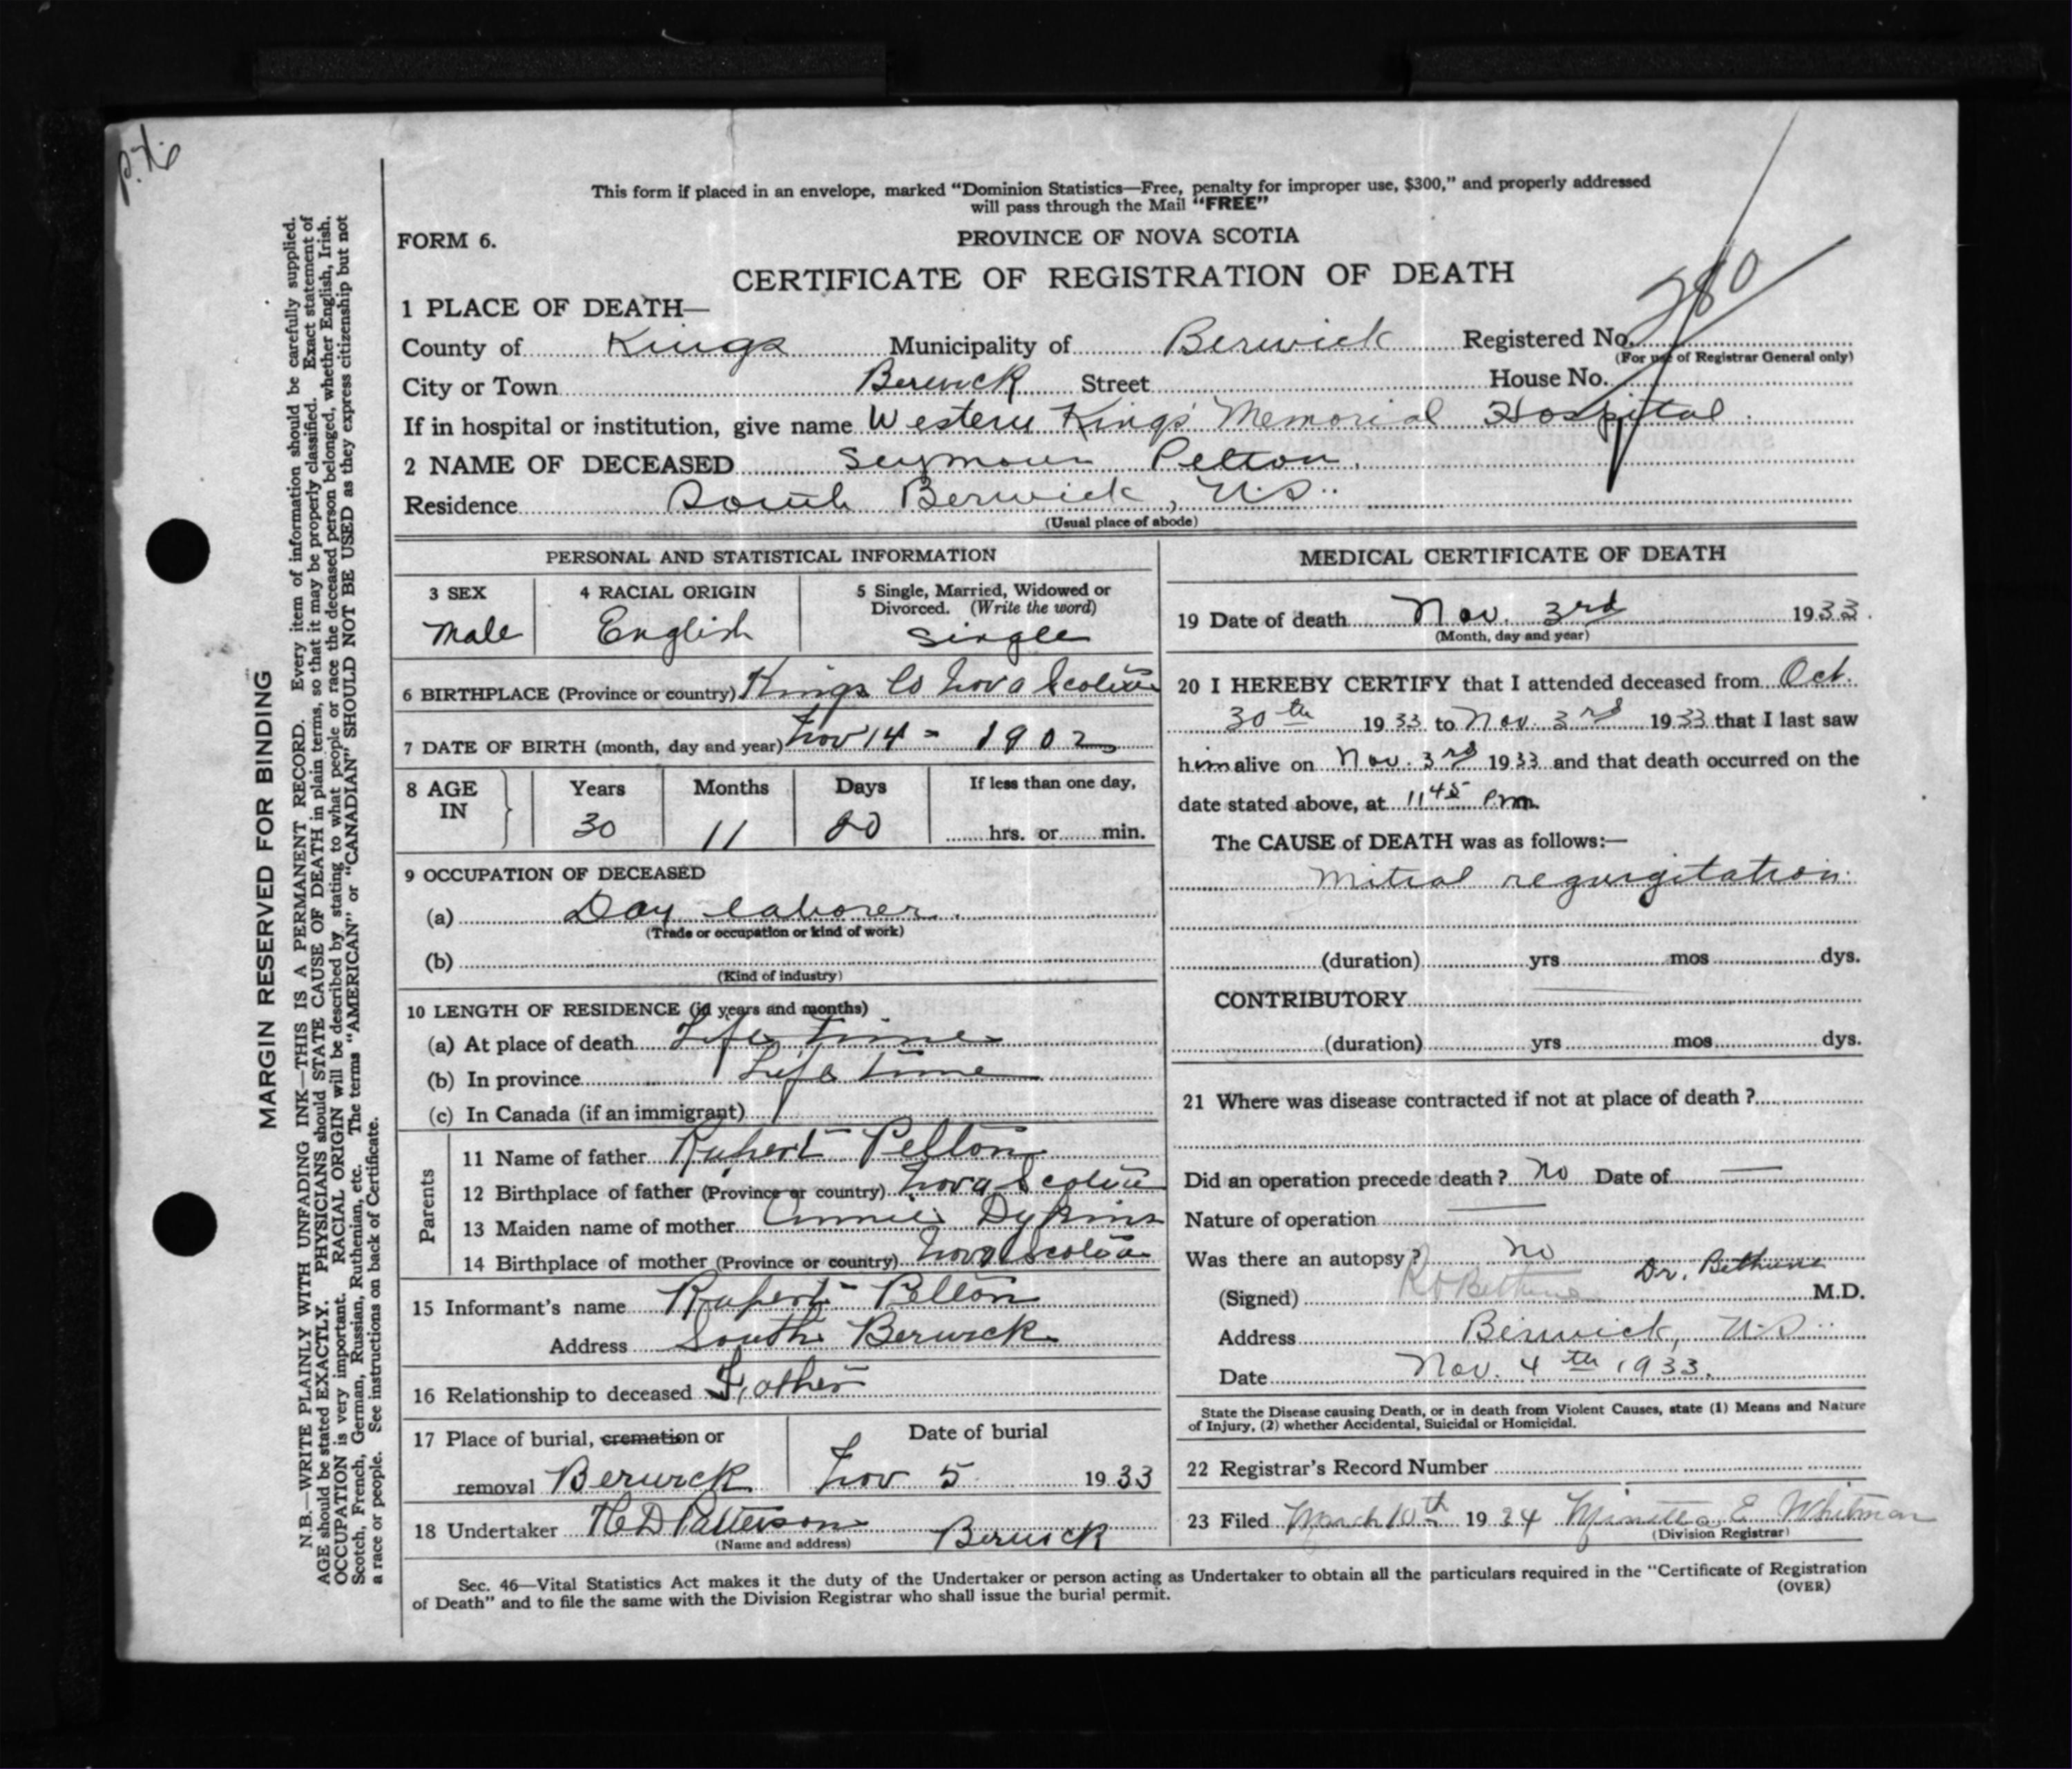 p.76
This form if placed in an envelope, marked “Dominion Statistics—Free, penalty for improper use, $300,” and properly addressed
will pass through the Mail “FREE”
FORM 6.
PROVINCE OF NOVA SCOTIA
CERTIFICATE OF REGISTRATION OF DEATH
280
1 PLACE OF DEATH—
County of Kings Municipality of Berwick Registered No.
(For use of Registrar General only)
City or Town Berwick Street House No.
If in hospital or institution, give name Western Kings Memorial Hospital.
2 NAME OF DECEASED Seymour Pelton.
Residence South Berwick, N.S.
(Usual place of abode)
PERSONAL AND STATISTICAL INFORMATION
3 SEX 4 RACIAL ORIGIN 5 Single, Married, Widowed or
Divorced. (Write the word)
Male English Single
6 BIRTHPLACE (Province or country) Kings Co Nova Scotia
7 DATE OF BIRTH (month, day and year) Nov 14 - 1902
8 AGE IN Years Months Days If less than one day,
30 11 20 hrs. or min.
9 OCCUPATION OF DECEASED
(a) Day laborer.
(Trade or occupation or kind of work)
(b)
(Kind of industry)
10 LENGTH OF RESIDENCE (in years and months)
(a) At place of death Life time
(b) In province Life time
(c) In Canada (if an immigrant)
Parents
11 Name of father Rupert Pelton
12 Birthplace of father (Province or country) Nova Scotia
13 Maiden name of mother Annie Dykins
14 Birthplace of mother (Province or country) Nova Scotia
15 Informant’s name Rupert Pelton
Address South Berwick
16 Relationship to deceased Father
17 Place of burial, cremation or Date of burial
removal Berwick Nov 5 1933
18 Undertaker H D Patterson Berwick
(Name and address)
MEDICAL CERTIFICATE OF DEATH
19 Date of death Nov. 3rd 1933.
(Month, day and year)
20 I HEREBY CERTIFY that I attended deceased from Oct.
30th 1933 to Nov. 3rd 1933 that I last saw
him alive on Nov. 3rd 1933 and that death occurred on the
date stated above, at 11 45 P.m.
The CAUSE of DEATH was as follows:—
Mitral regurgitation.
(duration) yrs mos dys.
CONTRIBUTORY
(duration) yrs mos dys.
21 Where was disease contracted if not at place of death ?
Did an operation precede death ? No Date of —
Nature of operation —
Was there an autopsy ? No
Dr. Bethune
(Signed) Bethune M.D.
Address Berwick, N.S.
Date Nov. 4th 1933.
State the Disease causing Death, or in death from Violent Causes, state (1) Means and Nature
of Injury, (2) whether Accidental, Suicidal or Homicidal.
22 Registrar’s Record Number
23 Filed March 10th 1934 E. Whitman
(Division Registrar)
Sec. 46—Vital Statistics Act makes it the duty of the Undertaker or person acting as Undertaker to obtain all the particulars required in the “Certificate of Registration
of Death” and to file the same with the Division Registrar who shall issue the burial permit.
(OVER)
MARGIN RESERVED FOR BINDING
N.B.—WRITE PLAINLY WITH UNFADING INK—THIS IS A PERMANENT RECORD. Every item of information should be carefully supplied.
AGE should be stated EXACTLY. PHYSICIANS should STATE CAUSE OF DEATH in plain terms, so that it may be properly classified. Exact statement of
OCCUPATION is very important. RACIAL ORIGIN will be described by stating to what people or race the deceased person belonged, whether English, Irish,
Scotch, French, German, Russian, Ruthenian, etc. The terms “AMERICAN” or “CANADIAN” SHOULD NOT BE USED as they express citizenship but not
a race or people. See instructions on back of Certificate.